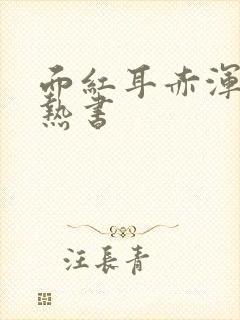 面紅耳赤渾
熱書
汪長青